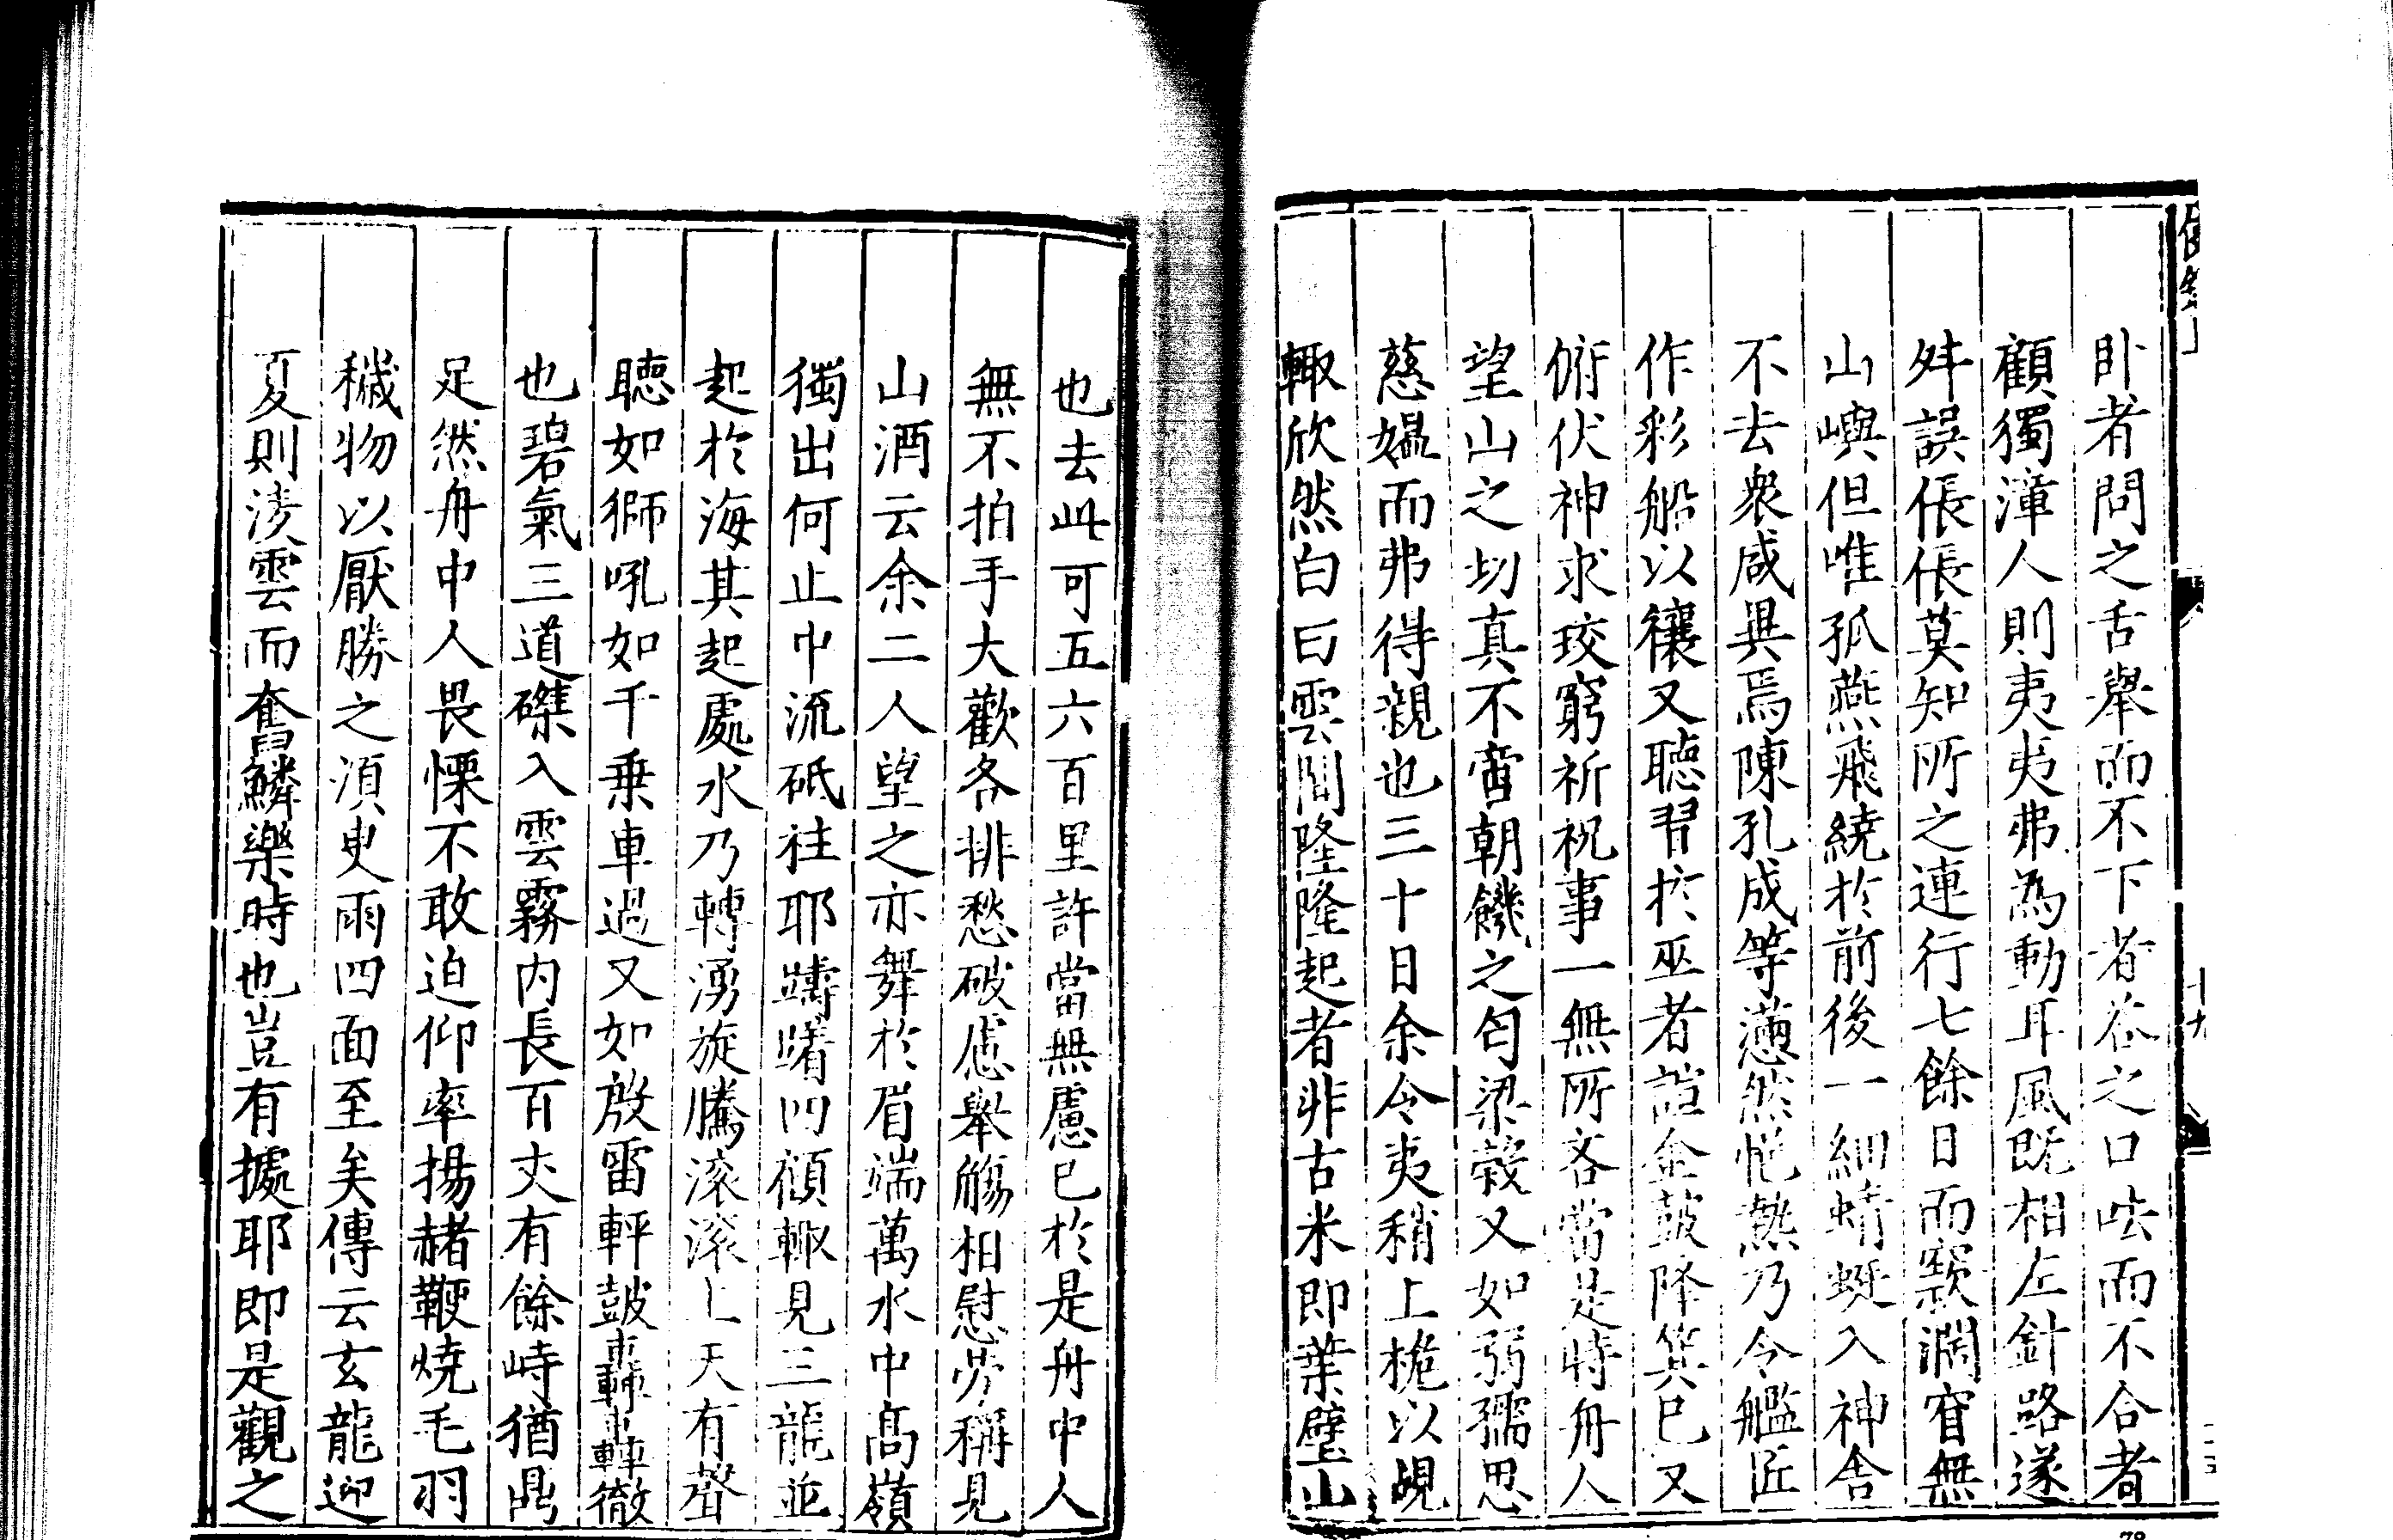 卧者問之舌舉而不下者答之口呿而不合者
顧獨漳人則夷夷弗為動耳風既相左針路遂
舛誤倀倀莫知所之連行七餘日而窾濶窅無
山嶼但唯孤燕飛繞於前後一細蜻蜓入神舍
不去衆咸異焉陳孔成等懣然悒熱乃令艦匠
作彩船以禳又聽習於巫者諠金鼓降箕已又
俯伏神求珓窮祈祝事一無所吝當是時舟人
望山之切真不啻朝饑之匄梁穀又如弱孺思
慈媼而弗得親也三十日余令夷稍上桅以覘
輙欣然白曰雲間隆隆起者非古米即葉壁山
也去此可五六百里許當無慮已於是舟中人
無不拍手大歡各排愁破慮舉觴相慰勞稱見
山酒云余二人望之亦舞於眉端萬水中髙嶺
獨出何止中流砥柱耶躊曙四顧輙見三龍並
起於海其起處水乃轉湧旋騰滚滚上天有聲
聽如獅吼如千乗車過又如殷雷軯鼓轟轟徹
也碧氣三道磔入雲霧内長百丈有餘峙猶鼎
足然舟中人畏慄不敢迫仰率揚赭鞭燒毛羽
穢物以厭勝之湏㬰雨四面至矣傳云玄龍迎
夏則淩雲而奮鱗樂時也豈有據耶即是觀之
十九